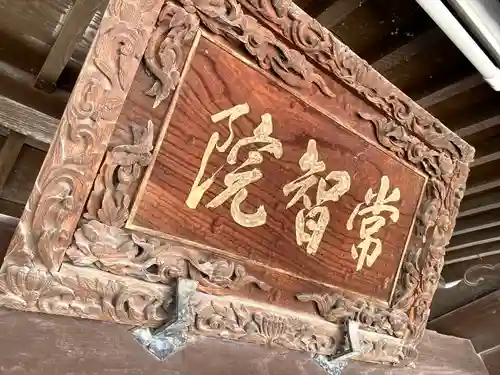 常智院